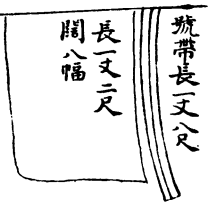 號帶長一丈八尺
長一丈二尺
闊八幅